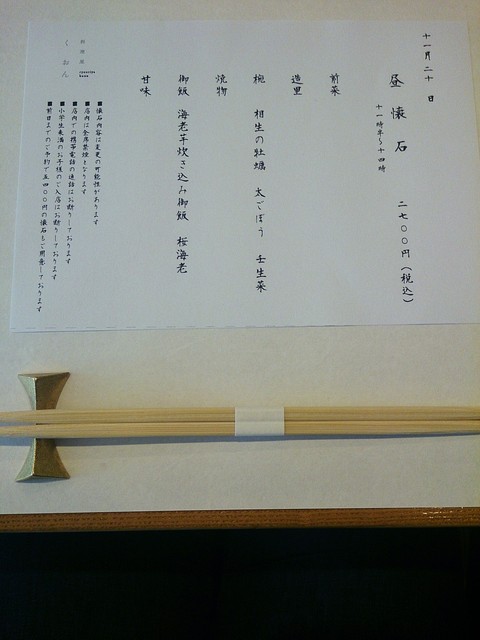 十一月二十 日
昼 懐 石 二七〇〇円（税込）
十一時半～十四時
前菜
造里
椀 相生の牡蠣 太ごぼう 壬生菜
焼物
御飯 海老芋炊き込み御飯 桜海老
甘味
■ 懐石内容は変更の可能性があります
■ 店内は全席禁煙となります
■ 店内での携帯電話の通話はお断りしております
■ 小学生未満のお子様のご入店はお断りしております
■ 前日までのご予約で五四〇〇円の懐石もご用意しております
くおん